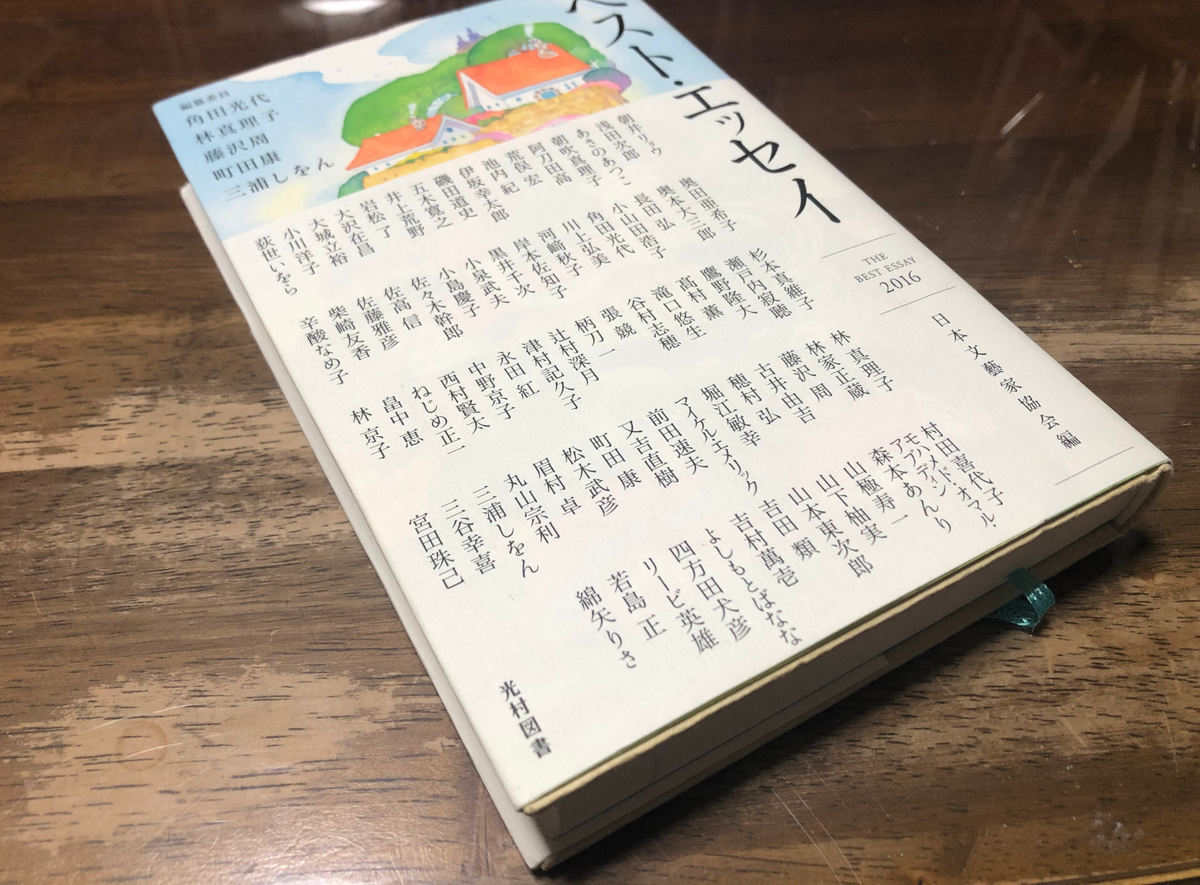 ベスト・エッセイ
THE
BEST ESSAY
2016
日本文藝家協会編
編纂委員
角田光代
林真理子
藤沢周
町田康
三浦しをん
朝井リョウ
浅田次郎
あさのあつこ
朝吹真理子
阿刀田高
荒俣 宏
池内 紀
伊坂幸太郎
磯田道史
五木寛之
井上荒野
岩松 了
大沢在昌
大城立裕
小川洋子
荻世いをら
奥田亜希子
奥本大三郎
長田 弘
小山田浩子
角田光代
川上弘美
河﨑秋子
岸本佐知子
黒井千次
小泉武夫
小島慶子
佐々木幹郎
佐高 信
佐藤雅彦
柴崎友香
辛酸なめ子
杉本真維子
瀬戸内寂聴
鷹野隆大
髙村 薫
滝口悠生
谷村志穂
張 競
柄刀 一
辻村深月
津村記久子
永田 紅
中野京子
西村賢太
ねじめ正一
畠中 恵
林 京子
林 真理子
林家正蔵
藤沢 周
古井由吉
穂村 弘
堀江敏幸
マイケル・エメリック
前田速夫
又吉直樹
町田 康
松木武彦
眉村 卓
丸山宗利
三浦しをん
三谷幸喜
宮田珠己
村田喜代子
モハメド・オマル・
アブディン
森本あんり
山極寿一
山下柚実
山本東次郎
吉田 類
吉村萬壱
よしもとばなな
四方田犬彦
リービ英雄
若島 正
綿矢りさ
光村図書